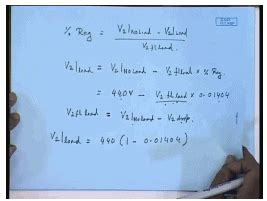 % Reg = V2|No Load - V2|Load
V2 fl Load.
V2|Load = V2|No Load - V2 fl Load × % Reg.
= 440V - V2 fl Load × 0.01404
V2 fl Load = V2|No Load - V2 drop.
V2|Load = 440 (1 - 0.01404)